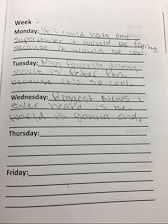 Week
Monday: If i could have any
superpower it would be flying
because it would be cool
Tuesday: My favorite disney
movie is Peter Pan
because it's so cool.
Wednesday: Biggest News i
ever heard is the
world is gonna end.
Thursday:
Friday: